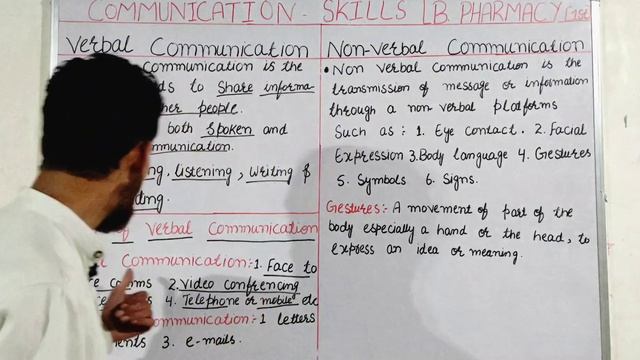 COMMUNICATION - SKILLS [B. PHARMACY 1st
Verbal Communication
communication is the
ds to share informa-
her people.
both spoken and
mmunication.
ng, listening, writing &
ding.
of Verbal Communication
Communication:- 1. Face to
comms 2. Video conferencing
4. Telephone or mobile etc
ommunication:- 1 letters
ents 3. e-mails.
Non-Verbal Communication
• Non verbal communication is the
transmission of message or information
through a non verbal platforms
Such as :- 1. Eye contact. 2. Facial
Expression 3. Body language 4. Gestures
5. Symbols 6. Signs.
Gestures:- A movement of part of the
body especially a hand or the head, to
express an idea or meaning.